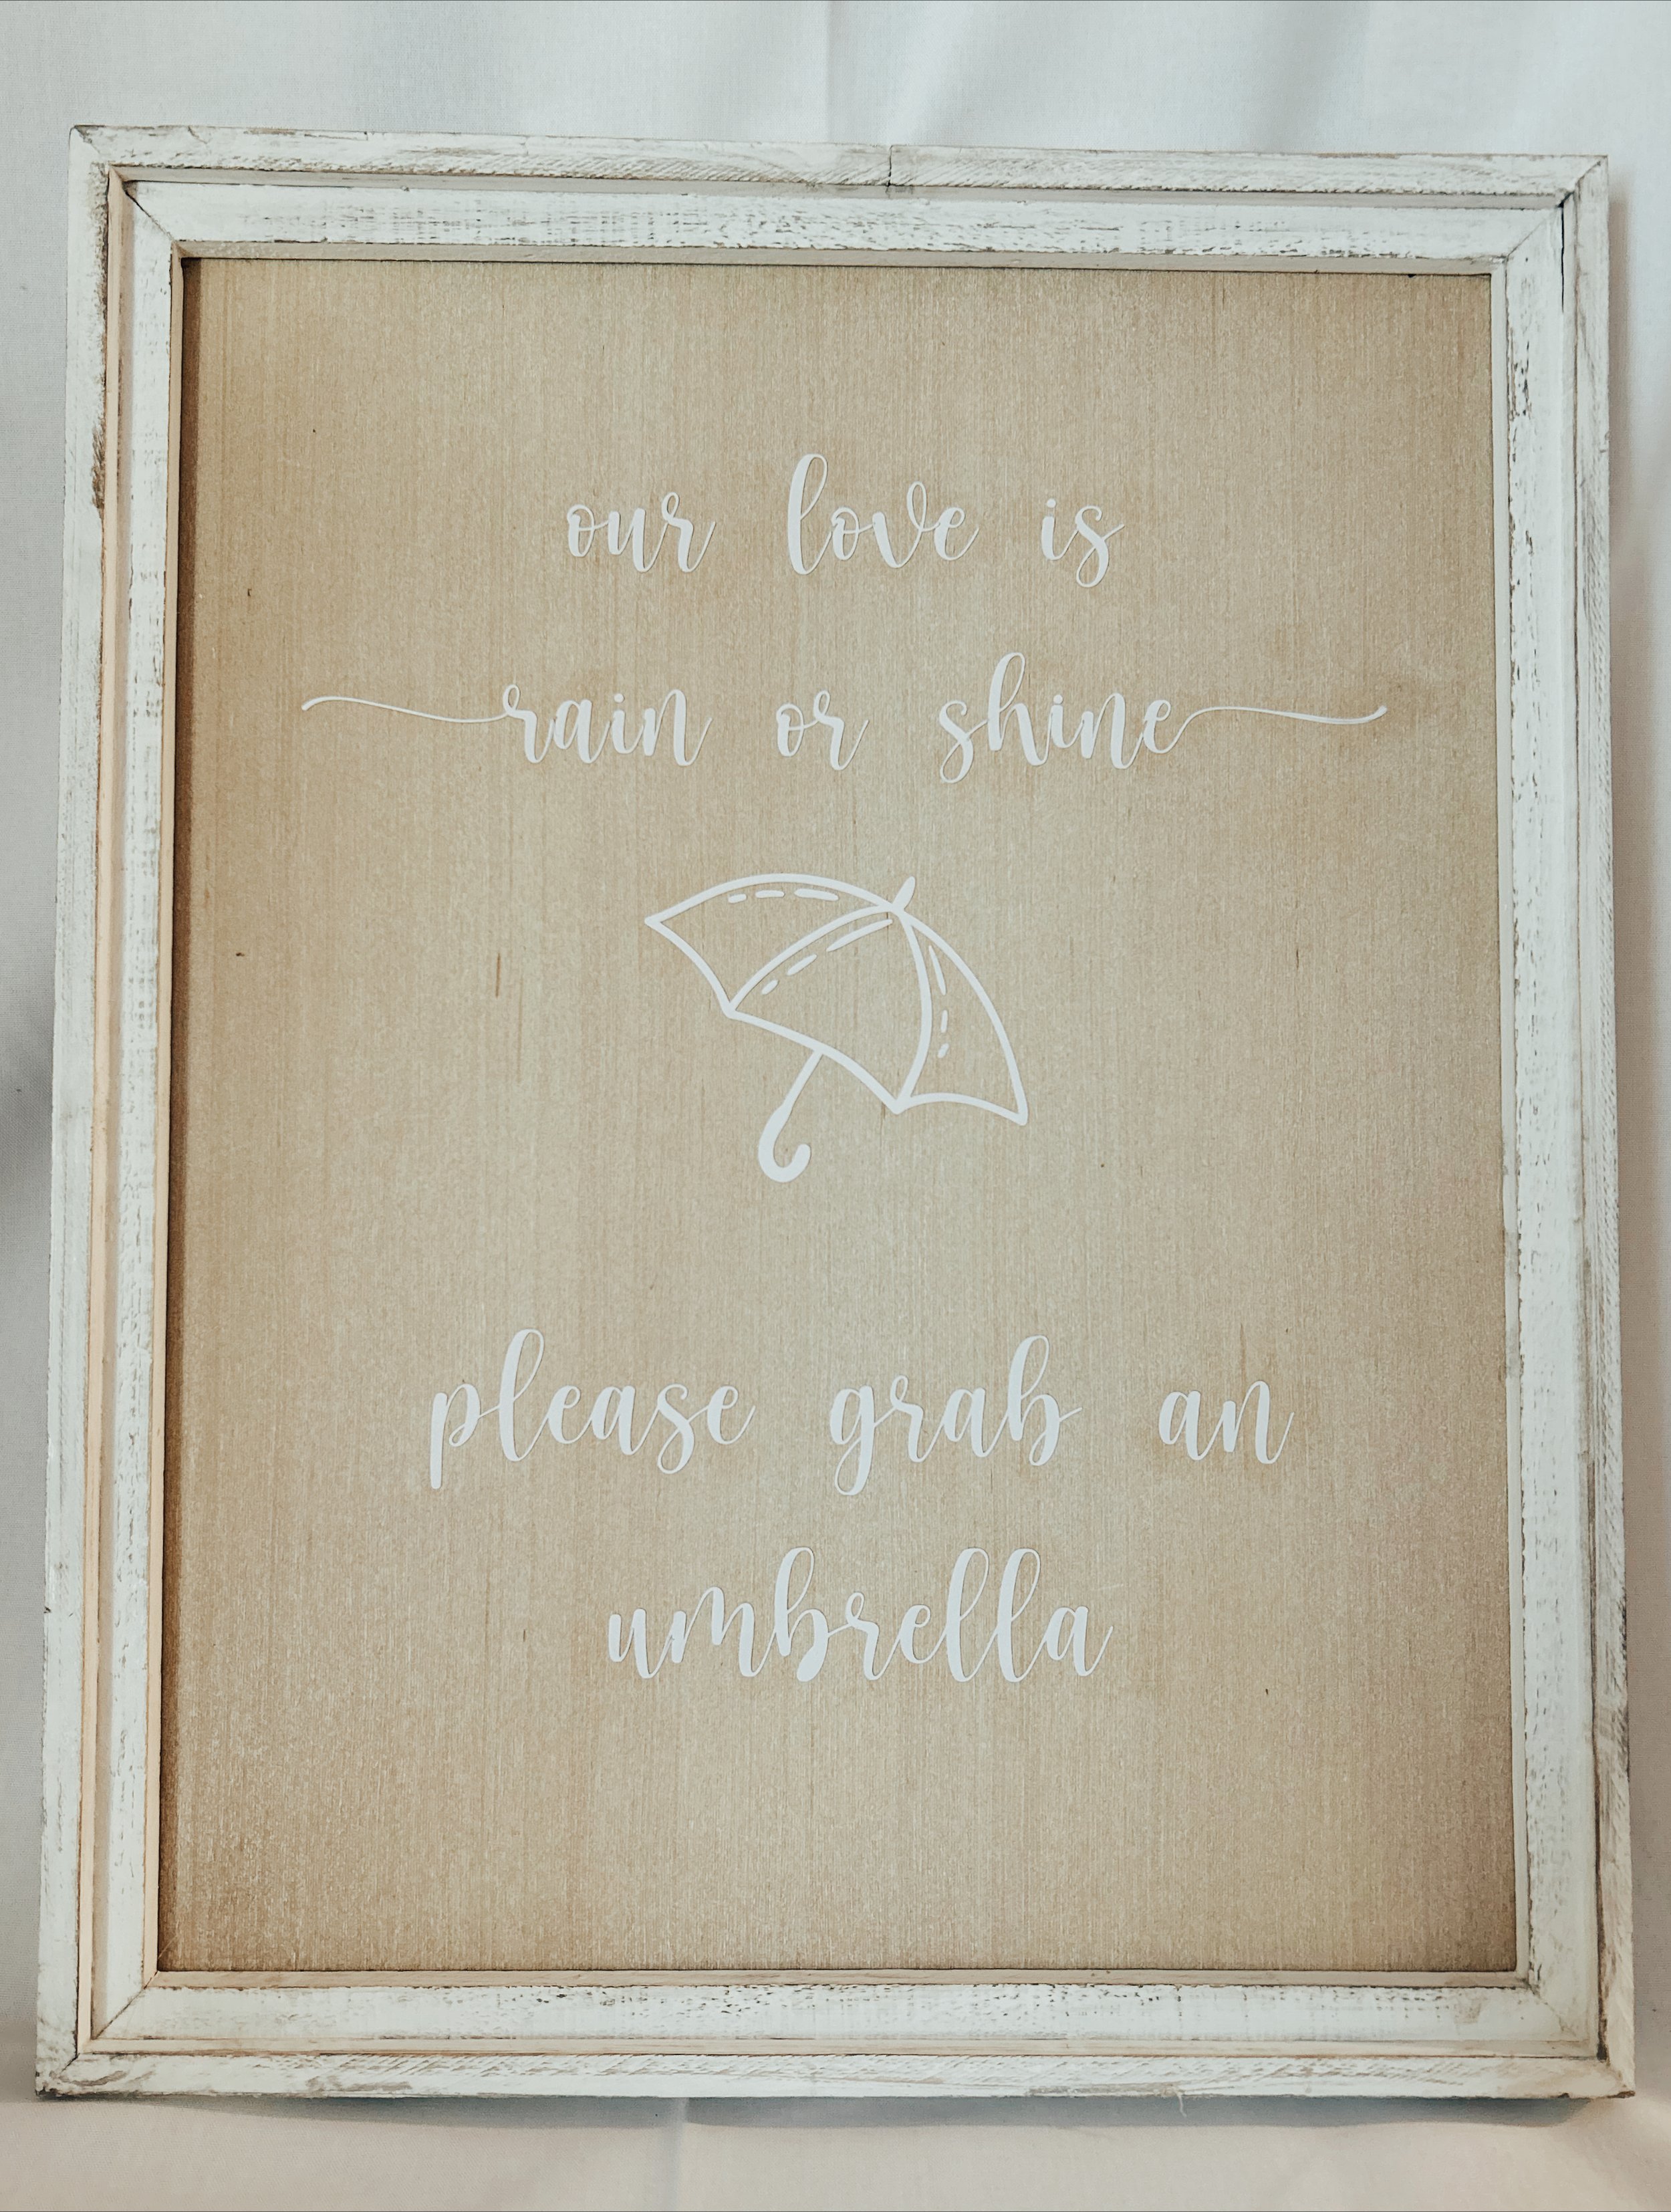 our love is
rain or shine
please grab an
umbrella